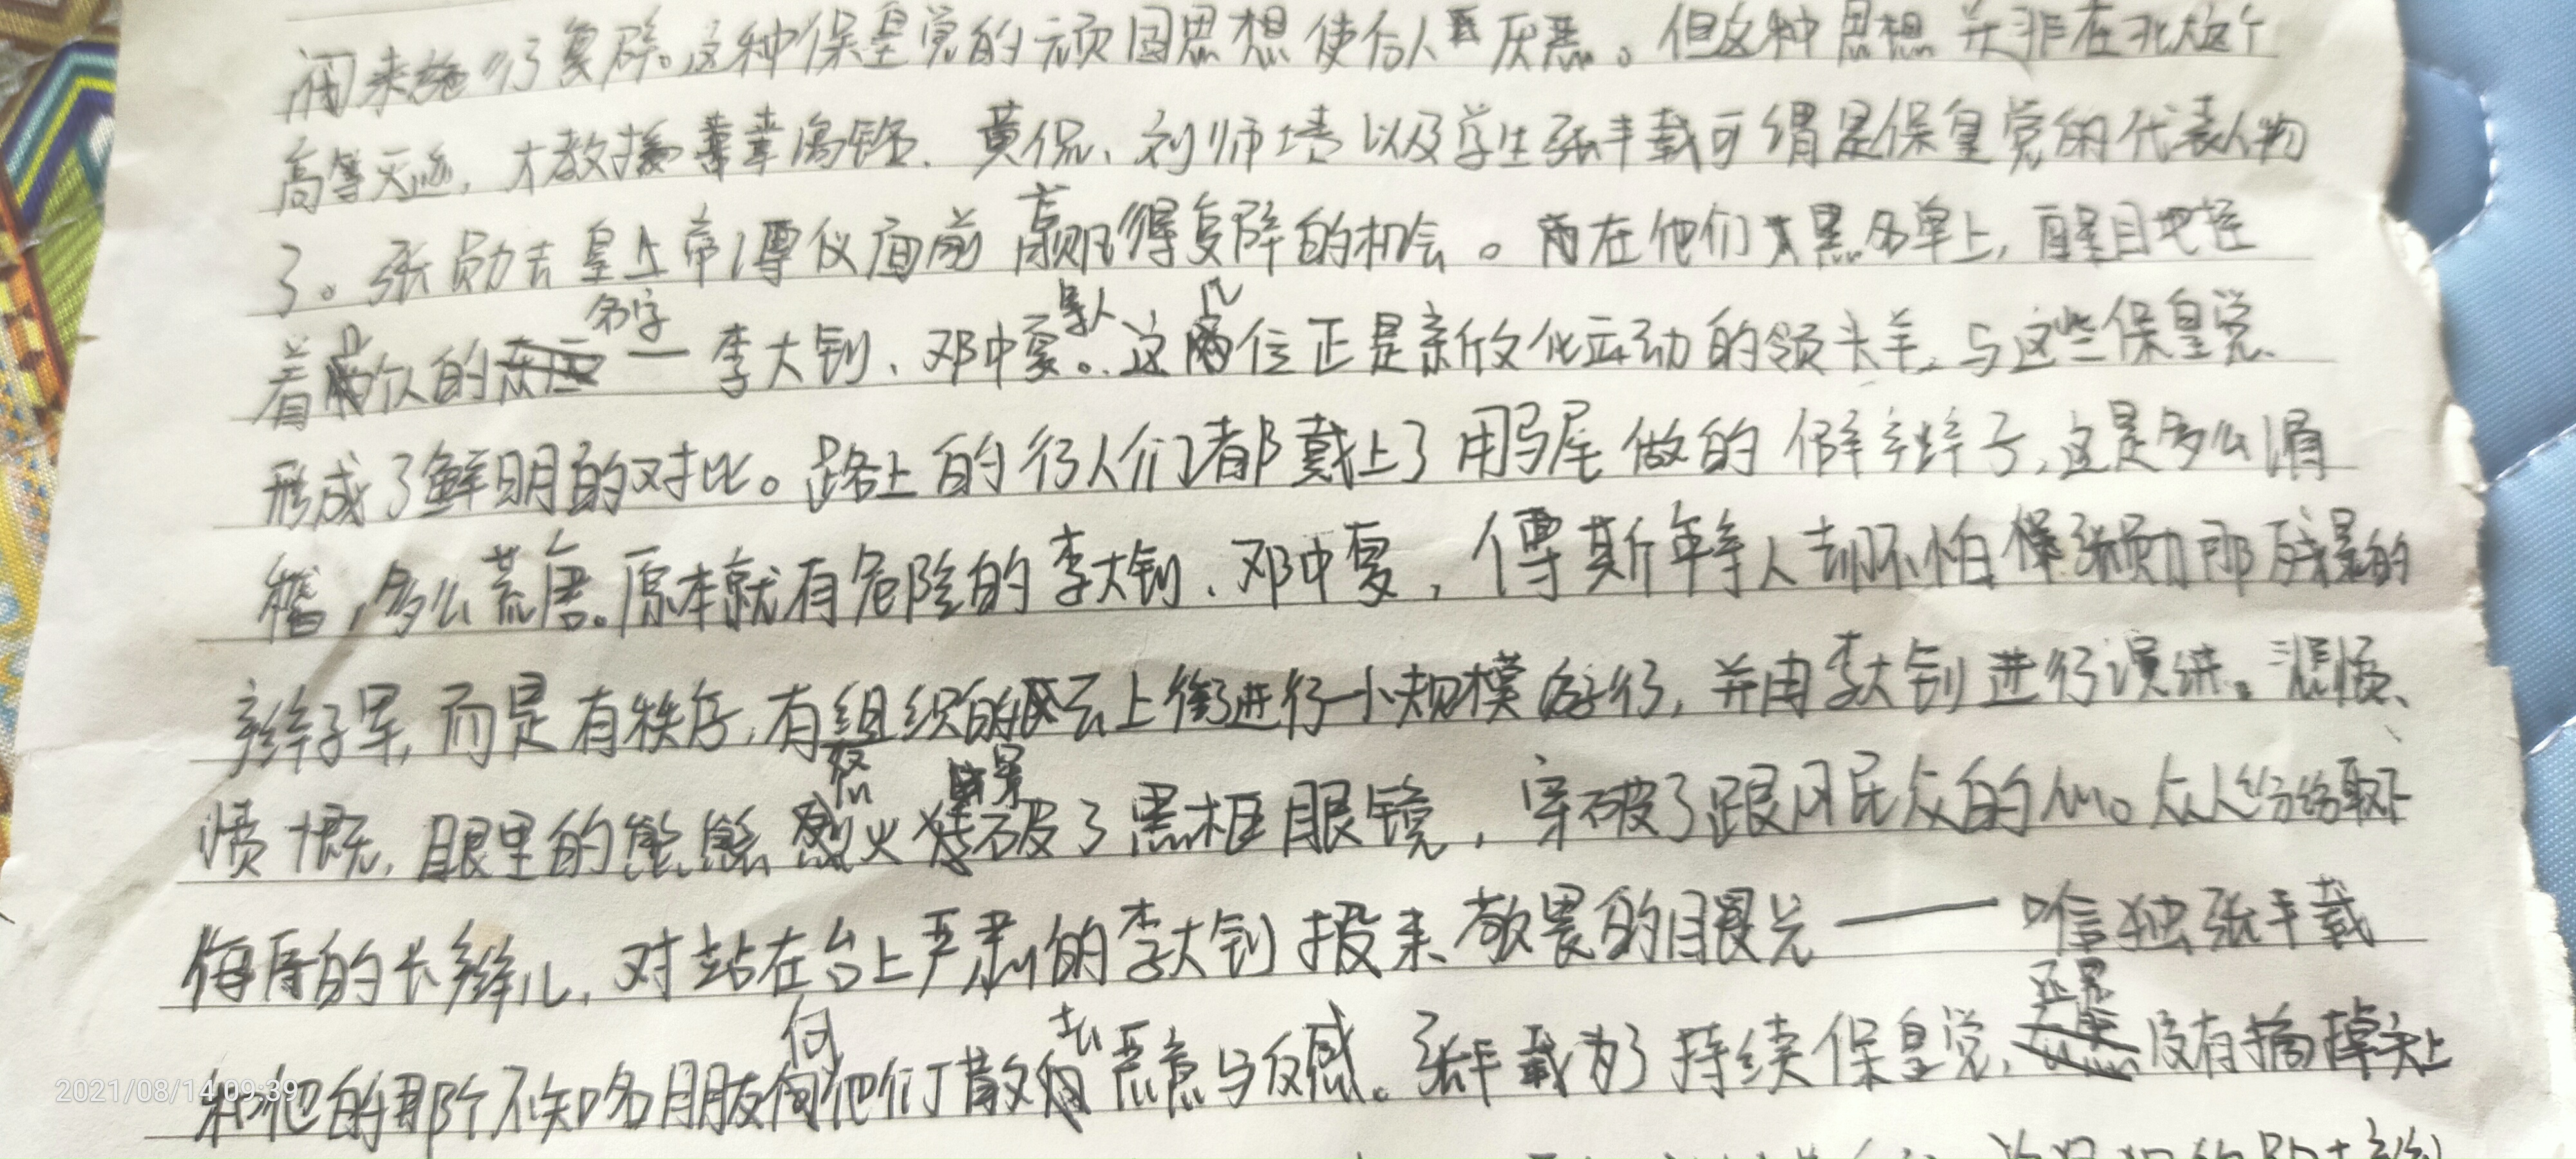 阁来施行复辟。这种保皇党的顽固思想使令人厌恶。但这种思想并非在北大这个
高等灭迹，才教授辜鸿铭、黄侃、刘师培以及学生张丰载可谓是保皇党的代表人物
了。张勋去皇上帝溥仪面前赢得复辟的机会。而在他们黑名单上，醒目地写
着两位的名字—李大钊、邓中夏。这两位正是新文化运动的领头羊，与这些保皇党
形成了鲜明的对比。路上的行人们都戴上了用马尾做的假辫子，这是多么滑
稽，多么荒唐。原本就有危险的李大钊、邓中夏，傅斯年等人却不怕张勋那残暴的
辫子军，而是有秩序，有组织的去上街进行小规模游行，并由李大钊进行演讲。悲愤、
愤慨，眼里的熊熊怒火穿破了黑框眼镜，穿破了跟风民众的心。众人纷纷取下
侮辱的长辫儿，对站在台上严肃的李大钊投来敬畏的目光——唯独张丰载
和他的那个不知名朋友向他们散去恶意与反感。张丰载为了持续保皇党，还是没有摘掉头上
2021/08/14 09:39